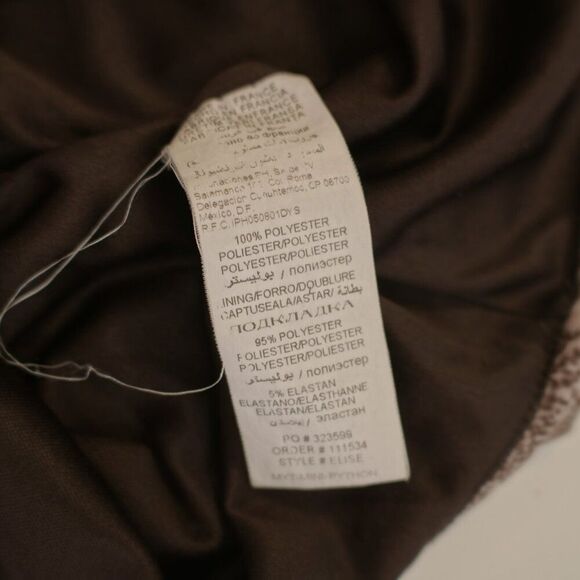 FRANCE
EN FRANCIA
EM FRANCA
Salamanco Col. Roma
Delegacion Cuauhtemoc, CP 06700
Mexico, D.F.
R.F.C. IPH050801DYS
100% POLYESTER
POLIESTER/POLYESTER
POLYESTER/POLYESTER
بوليستر / полиэстер
LINING/FORRO/DOUBLURE
CAPTUSEALA/ASTAR/ بطانة
ПОДКЛАДКА
95% POLYESTER
POLIESTER/POLYESTER
POLYESTER/POLYESTER
بوليستر / полиэстер
5% ELASTAN
ELASTANO/ELASTHANNE
ELASTAN/ELASTAN
эластан
PO # 323599
ORDER # 111534
STYLE # ELISE
PYTHON